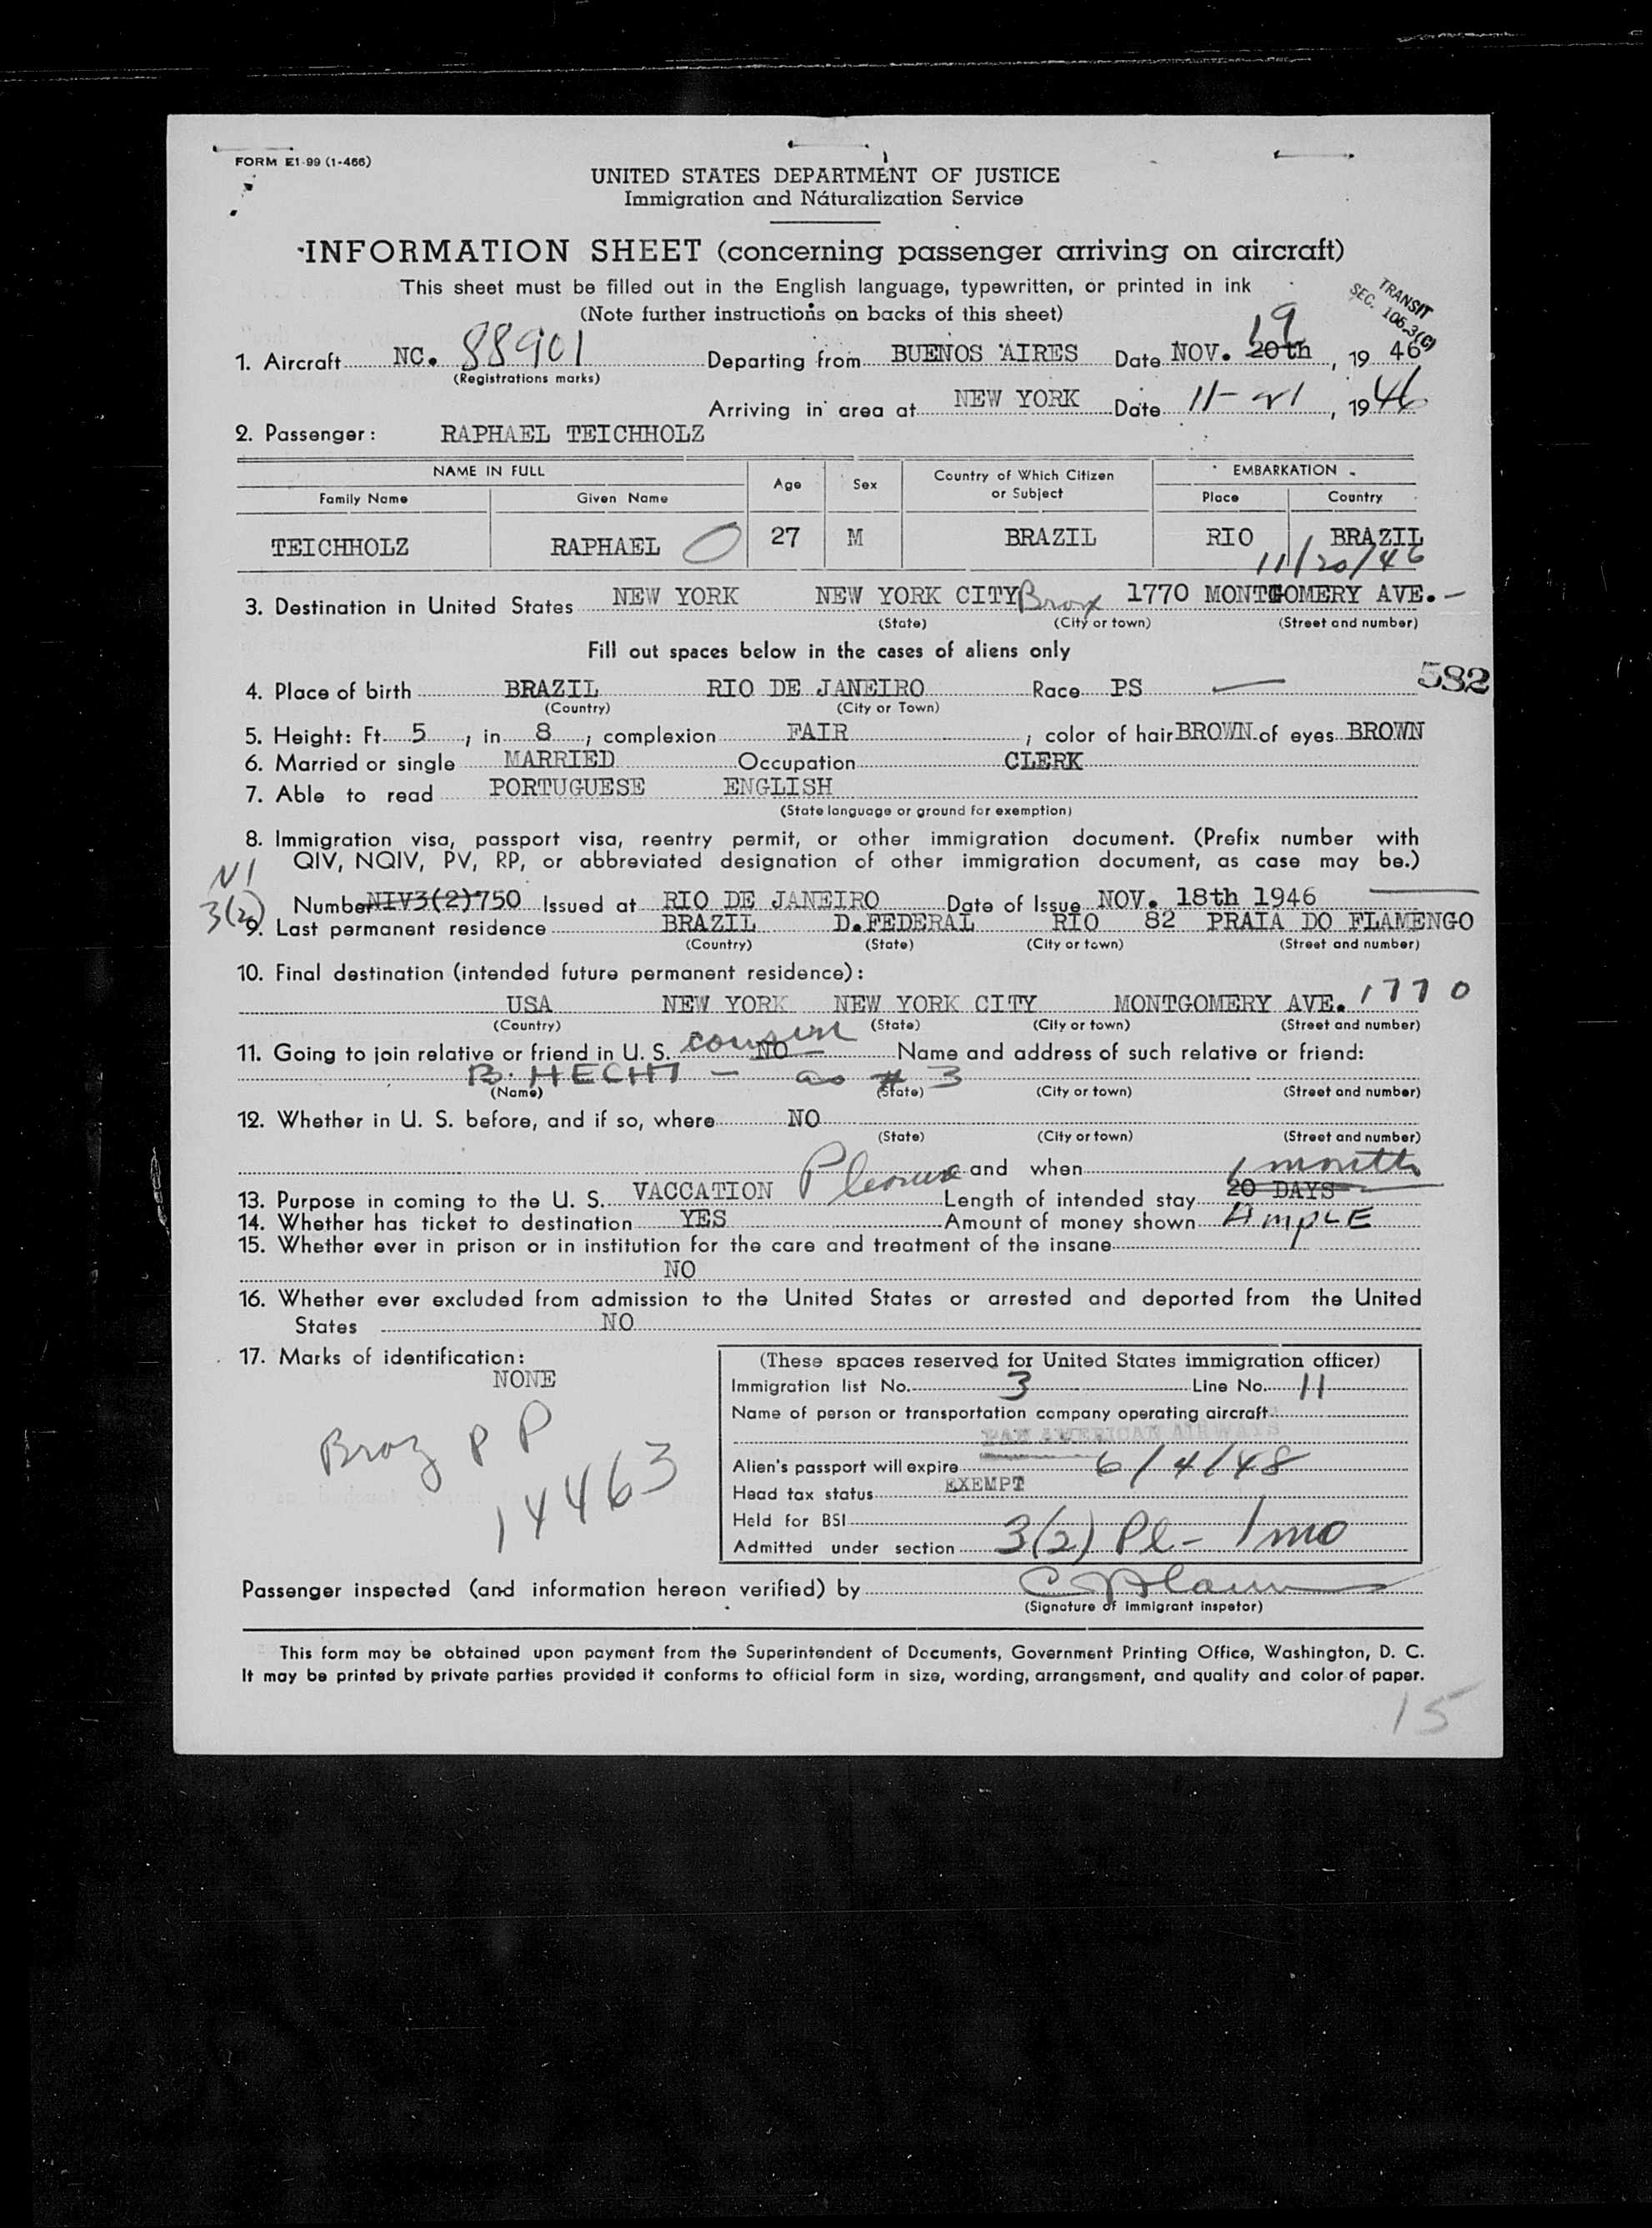 FORM E1-99 (1-466)
UNITED STATES DEPARTMENT OF JUSTICE
Immigration and Naturalization Service
INFORMATION SHEET (concerning passenger arriving on aircraft)
This sheet must be filled out in the English language, typewritten, or printed in ink
(Note further instructions on backs of this sheet)
TRANSIT
SEC. 105.3(C)
19
1. Aircraft NC. 88901 Departing from BUENOS AIRES Date NOV. 20th, 19 46
(Registrations marks)
Arriving in area at NEW YORK Date 11-21, 1946
2. Passenger: RAPHAEL TEICHHOLZ
NAME IN FULL Age Sex Country of Which Citizen or Subject EMBARKATION
Family Name Given Name Place Country
TEICHHOLZ RAPHAEL 27 M BRAZIL RIO BRAZIL
11/20/46
3. Destination in United States NEW YORK NEW YORK CITY Bronx 1770 MONTGOMERY AVE.
(State) (City or town) (Street and number)
Fill out spaces below in the cases of aliens only
582
4. Place of birth BRAZIL RIO DE JANEIRO Race PS
(Country) (City or Town)
5. Height: Ft 5, in 8; complexion FAIR; color of hair BROWN of eyes BROWN
6. Married or single MARRIED Occupation CLERK
7. Able to read PORTUGUESE ENGLISH
(State language or ground for exemption)
8. Immigration visa, passport visa, reentry permit, or other immigration document. (Prefix number with
QIV, NQIV, PV, RP, or abbreviated designation of other immigration document, as case may be.)
NI
3(2)
Number NIV3(2)750 Issued at RIO DE JANEIRO Date of Issue NOV. 18th 1946
9. Last permanent residence BRAZIL D.FEDERAL RIO 82 PRAIA DO FLAMENGO
(Country) (State) (City or town) (Street and number)
10. Final destination (intended future permanent residence):
USA NEW YORK NEW YORK CITY MONTGOMERY AVE. 1770
(Country) (State) (City or town) (Street and number)
11. Going to join relative or friend in U. S. cousin NO Name and address of such relative or friend:
B. HECHT - as # 3
(Name) (State) (City or town) (Street and number)
12. Whether in U. S. before, and if so, where NO
(State) (City or town) (Street and number)
and when
1 month
13. Purpose in coming to the U. S. VACCATION Pleasure Length of intended stay 20 DAYS
14. Whether has ticket to destination YES Amount of money shown AMPLE
15. Whether ever in prison or in institution for the care and treatment of the insane
NO
16. Whether ever excluded from admission to the United States or arrested and deported from the United
States NO
17. Marks of identification:
NONE
Braz P P
14463
(These spaces reserved for United States immigration officer)
Immigration list No. 3 Line No. 11
Name of person or transportation company operating aircraft
PAN AMERICAN AIRWAYS
Alien's passport will expire 6/4/48
Head tax status EXEMPT
Held for BSI
Admitted under section 3(2) Pl - 1 mo
Passenger inspected (and information hereon verified) by
(Signature of immigrant inspetor)
This form may be obtained upon payment from the Superintendent of Documents, Government Printing Office, Washington, D. C.
It may be printed by private parties provided it conforms to official form in size, wording, arrangement, and quality and color of paper.
15